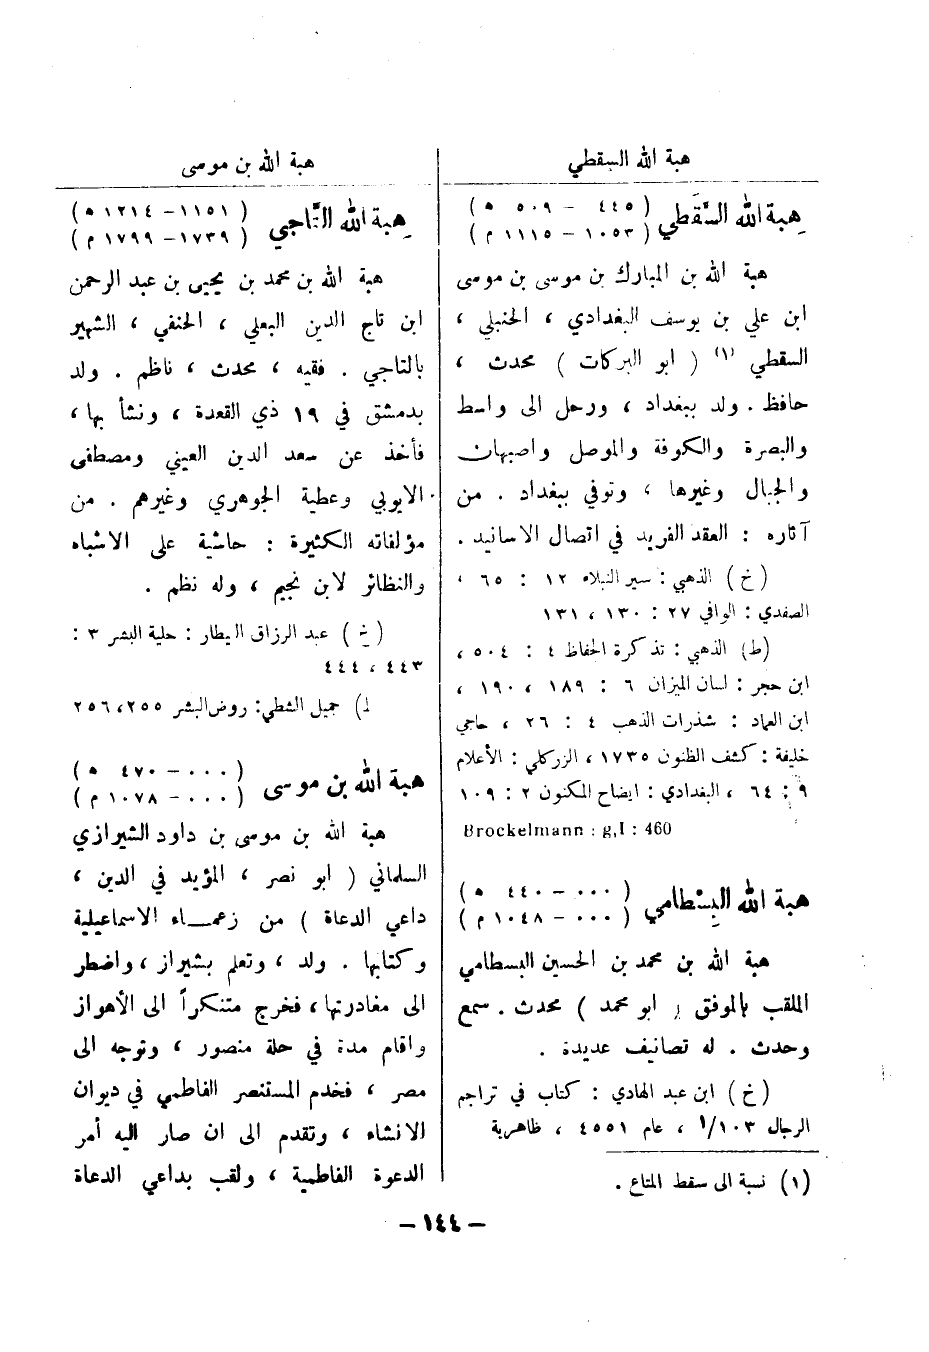 هبة الله السقطي
هبة الله السَّقَطي ( ٤٤٥ – ٥٠٩ ه )
( ١٠٥٣ – ١١١٥ م )
هبة الله بن المبارك بن موسى بن موسى
ابن علي بن يوسف البغدادي ، الحنبلي ،
السقطي (١) ( ابو البركات ) محدث ،
حافظ . ولد ببغداد ، ورحل الى واسط
والبصرة والكوفة والموصل واصبهان
والجبال وغيرها ، وتوفي ببغداد . من
آثاره : العقد الفريد في اتصال الاسانيد .
( خ ) الذهبي : سير النبلاء ١٢ : ٦٥ ،
الصفدي : الوافي ٢٧ : ١٣٠ ، ١٣١
( ط ) الذهبي : تذكرة الحفاظ ٤ : ٥٠٤ ،
ابن حجر : لسان الميزان ٦ : ١٨٩ ، ١٩٠ ،
ابن العماد : شذرات الذهب ٤ : ٢٦ ، حاجي
خليفة : كشف الظنون ١٧٣٥ ، الزركلي : الأعلام
٩ : ٦٤ ، البغدادي : ايضاح المكنون ٢ : ١٠٩
Brockelmann : g,I : 460
هبة الله البِسْطامي ( ٠٠٠ – ٤٤٠ ه )
( ٠٠٠ – ١٠٤٨ م )
هبة الله بن محمد بن الحسين البسطامي
الملقب بالموفق ( ابو محمد ) محدث . سمع
وحدث . له تصانيف عديدة .
( خ ) ابن عبد الهادي : كتاب في تراجم
الرجال ١/١٠٣ ، عام ٤٥٥١ ، ظاهرية
(١) نسبة الى سقط المتاع .
هبة الله بن موسى
هِبة الله التَّاجي ( ١١٥١ – ١٢١٤ ه )
( ١٧٣٩ – ١٧٩٩ م )
هبة الله بن محمد بن يحيى بن عبد الرحمن
ابن تاج الدين البعلي ، الحنفي ، الشهير
بالتاجي . فقيه ، محدث ، ناظم . ولد
بدمشق في ١٩ ذي القعدة ، ونشأ بها ،
فأخذ عن سعد الدين العيني ومصطفى
الايوبي وعطية الجوهري وغيرهم . من
مؤلفاته الكثيرة : حاشية على الاشباه
والنظائر لابن نجيم ، وله نظم .
( خ ) عبد الرزاق البيطار : حلية البشر ٣ :
٤٤٣ ، ٤٤٤
ط) جميل الشطي : روض البشر ٢٥٥ ، ٢٥٦
هبة الله بن موسى ( ٠٠٠ – ٤٧٠ ه )
( ٠٠٠ – ١٠٧٨ م )
هبة الله بن موسى بن داود الشيرازي
السلماني ( ابو نصر ، المؤيد في الدين ،
داعي الدعاة ) من زعمـــاء الاسماعيلية
وكتابها . ولد ، وتعلم بشيراز ، واضطر
الى مغادرتها ، فخرج متنكراً الى الأهواز
واقام مدة في حلة منصور ، وتوجه الى
مصر ، فخدم المستنصر الفاطمي في ديوان
الانشاء ، وتقدم الى ان صار اليه أمر
الدعوة الفاطمية ، ولقب بداعي الدعاة
– ١٤٤ –